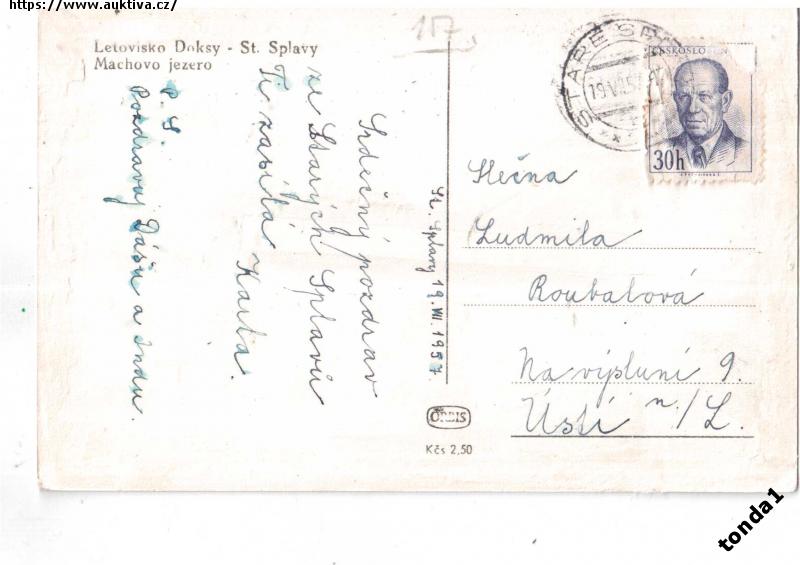 https://www.auktiva.cz/
157
Letovisko Doksy - St. Splavy
Machovo jezero
STARÉ SP
19.VII.57
ČESKOSLO EN
30h
Srdečný pozdrav
ze Starých Splavů
Ti zasílá
Karla.
P. S.
Pozdravuj Dášu a Indu.
St. Splavy 19. VII. 1957.
Slečna
Ludmila
Roubalová
Na výsluní 9.
Ústí n./L.
ORBIS
Kčs 2,50
tonda1